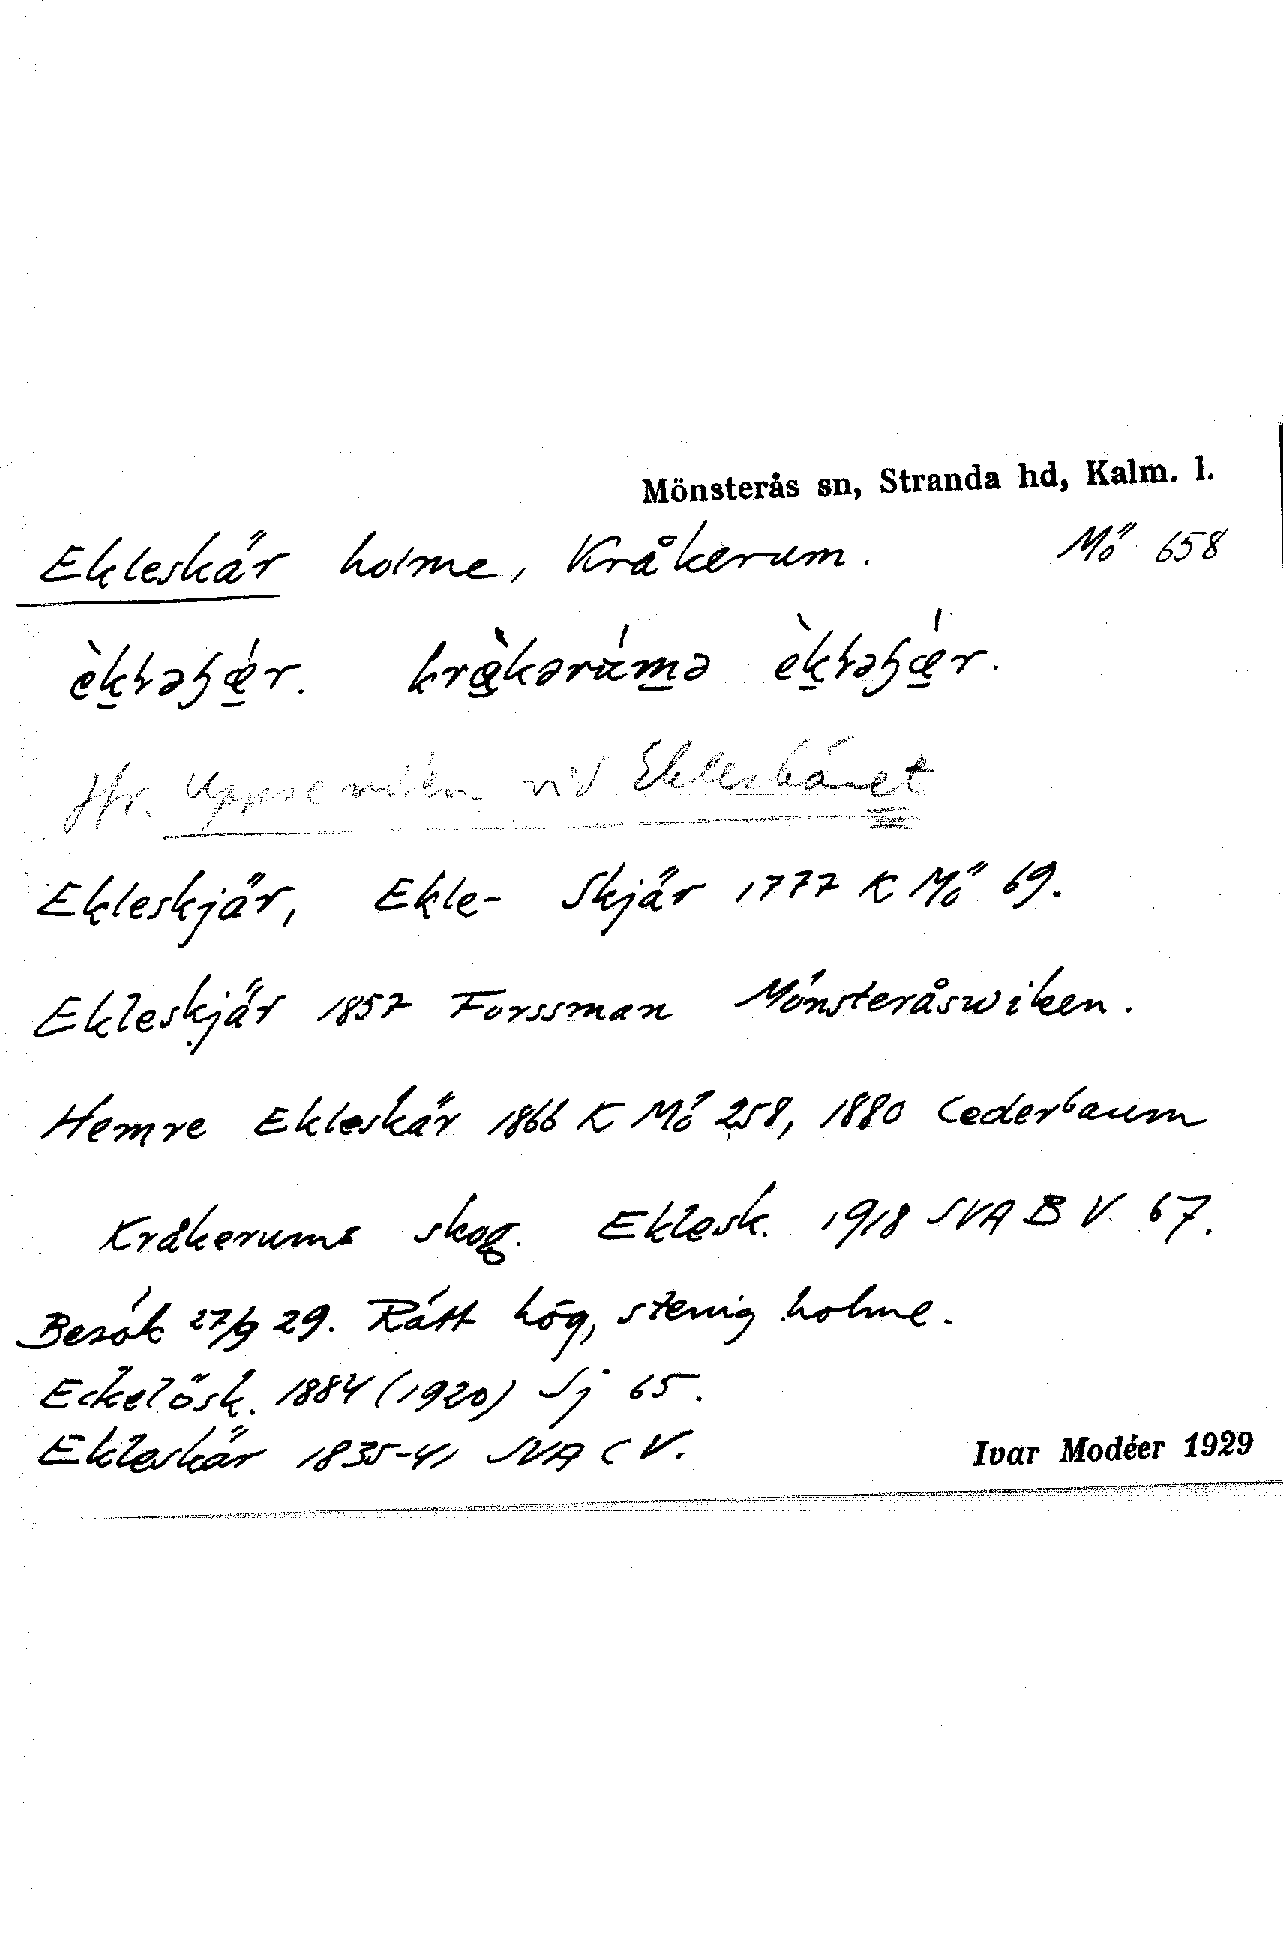 Mönsterås sn, Stranda hd, Kalm. l.
Ekleskär holme, Kråkerum. Mö 658
Jfr. vid Ekleskäret
Ekleskjär, Ekle- Skjär 1777 K Mö 69.
Ekleskjär 1857 Forssman Mönsteråswiken.
Hemre Ekleskär 1866 K Mö 258, 1880 Cederbaum
Kråkerums skog. Eklesk. 1918 SVA B V 67.
Besök 27/9 29. Rätt hög, stenig holme.
Eckelösk. 1884 (1920) Sj 65.
Ekleskär 1835-41 SVA C V.
Ivar Modéer 1929